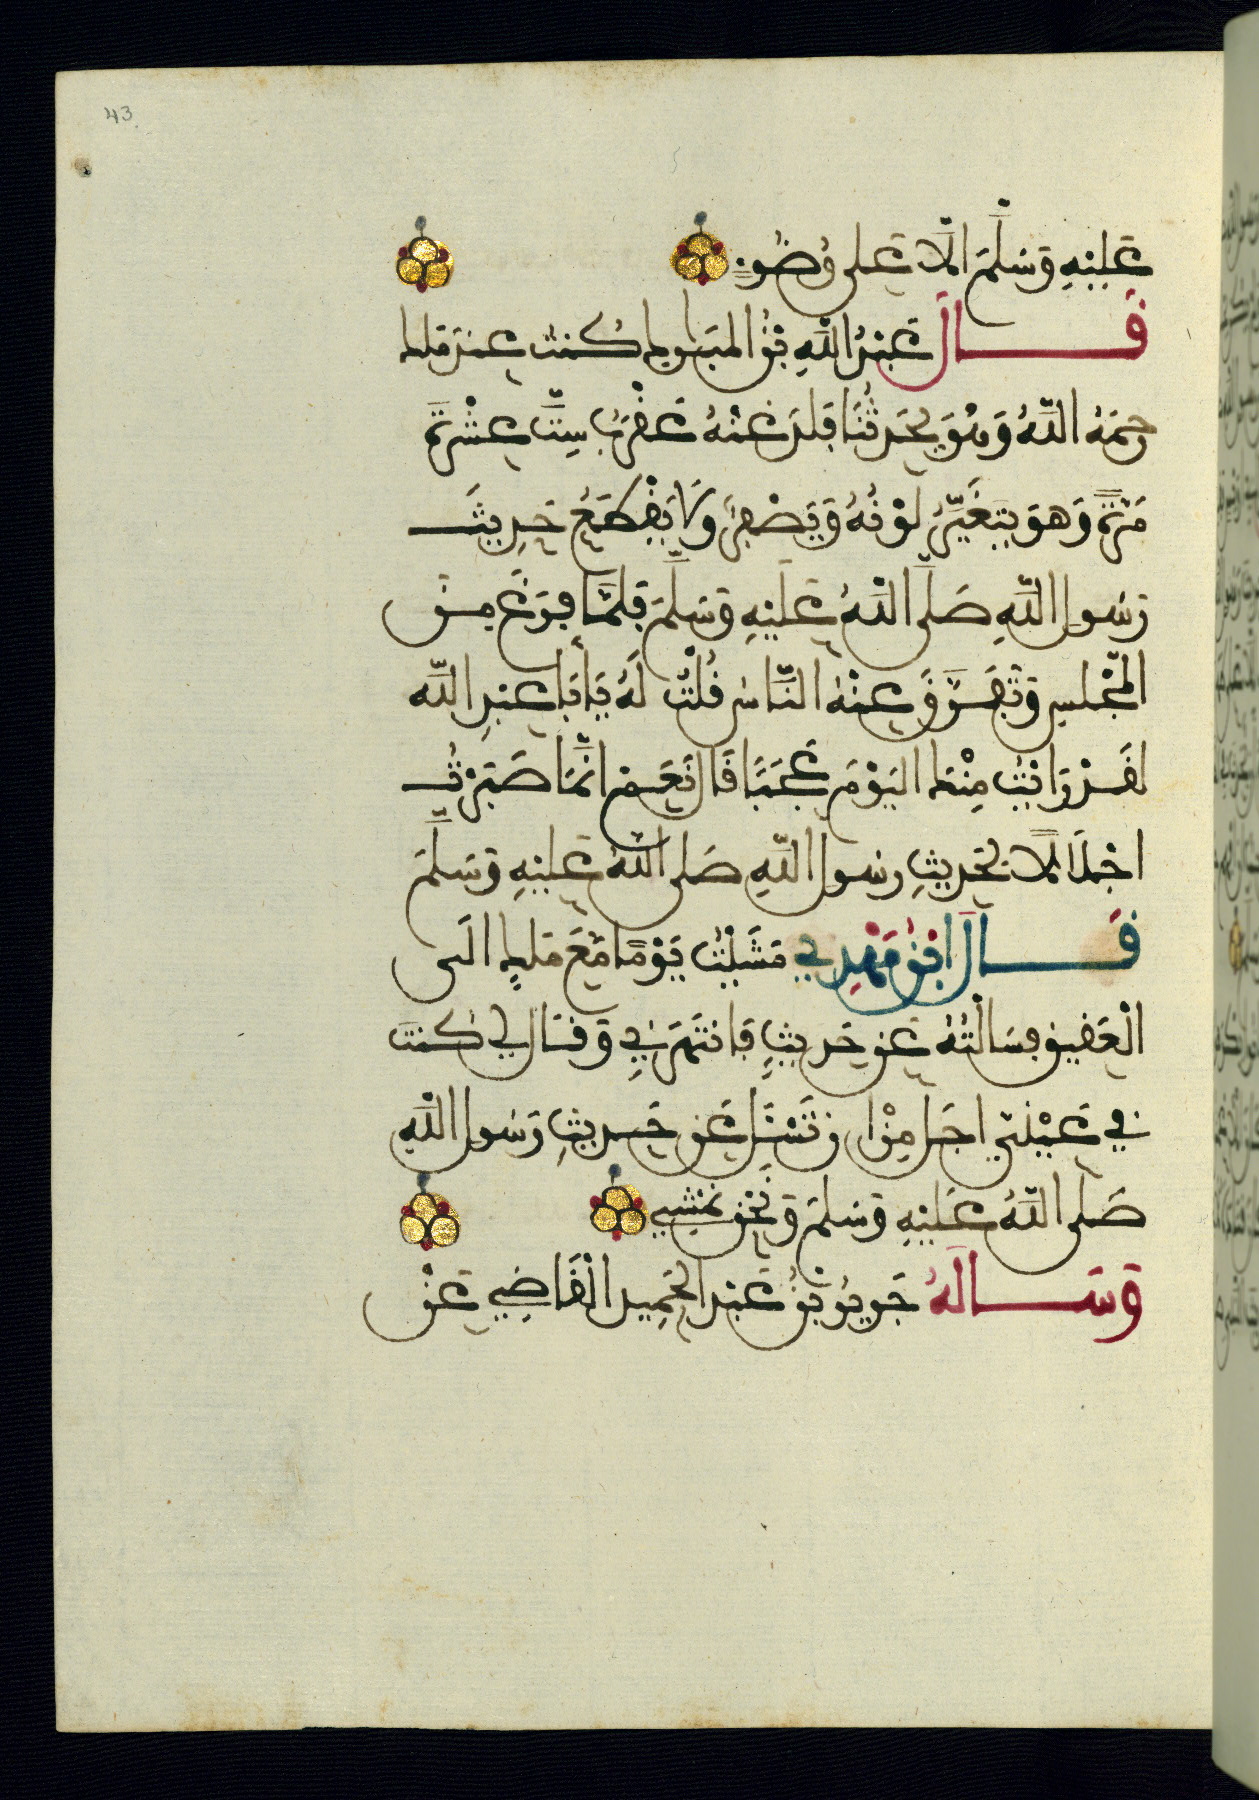 43
عَلَيْهِ وَسَلَّمَ اِلَّا عَلى وُضُوءٍ
قَالَ عَبْدُ اللَّهِ بْنُ المبَارِك كُنت عِندَ مَلِك
رحِمَهُ اللَّهُ وَهُوَ يُحَدِثُنَا فَلَدَغَتْهُ عَقْرَبٌ سِتَّ عَشْرَةَ
مَرَّةً وَهوَ يَتَغَيَّرُ لَوْنُهُ وَيَصْفَرُّ وَلَا يَقْطَعُ حَدِيثَ
رَسُولِ اللَّهِ صَلَّى اللَّهُ عَلَيْهِ وَسَلَّمَ فَلَمَّا فَرَغَ مِنَ
المَجْلسِ وَتَفَرَّقَ عَنْهُ النَّاسُ قُلْتُ لَهُ يَا أَبَا عَبْدِ اللَّه
لَقَدْ رَايْتُ مِنْكَ اليَوْمَ عَجَبًا قَالَ نَعَم اِنَّمَا صَبَرْتُ
اجْلَالًا لِحَدِيثِ رسُولِ اللَّهِ صَلى اللَّهُ عَلَيْهِ وَسَلَّمَ
قَالَ ابْنُ مَهْدِي مَشَيْتُ يَوْمًا مَعَ مَلِكٍ اِلَى
الْعَقِيقِ فسَالْتُهُ عَن حَدِيثٍ فَانْتَهَرَنِي وَقَال لِي كُنتَ
في عَيْنَي اجَلَّ مِنْ ان تَسْئَلَ عَن حَدِيثِ رَسُولِ اللَّهِ
صَلَى اللَّهُ عَلَيْهِ وَسَلمَ وَنَحْنُ نَمْشِي
وَسَالَهُ جَرِيرُ بْنُ عَبْدِ الحَمِيدِ الْقَاضِي عَنْ